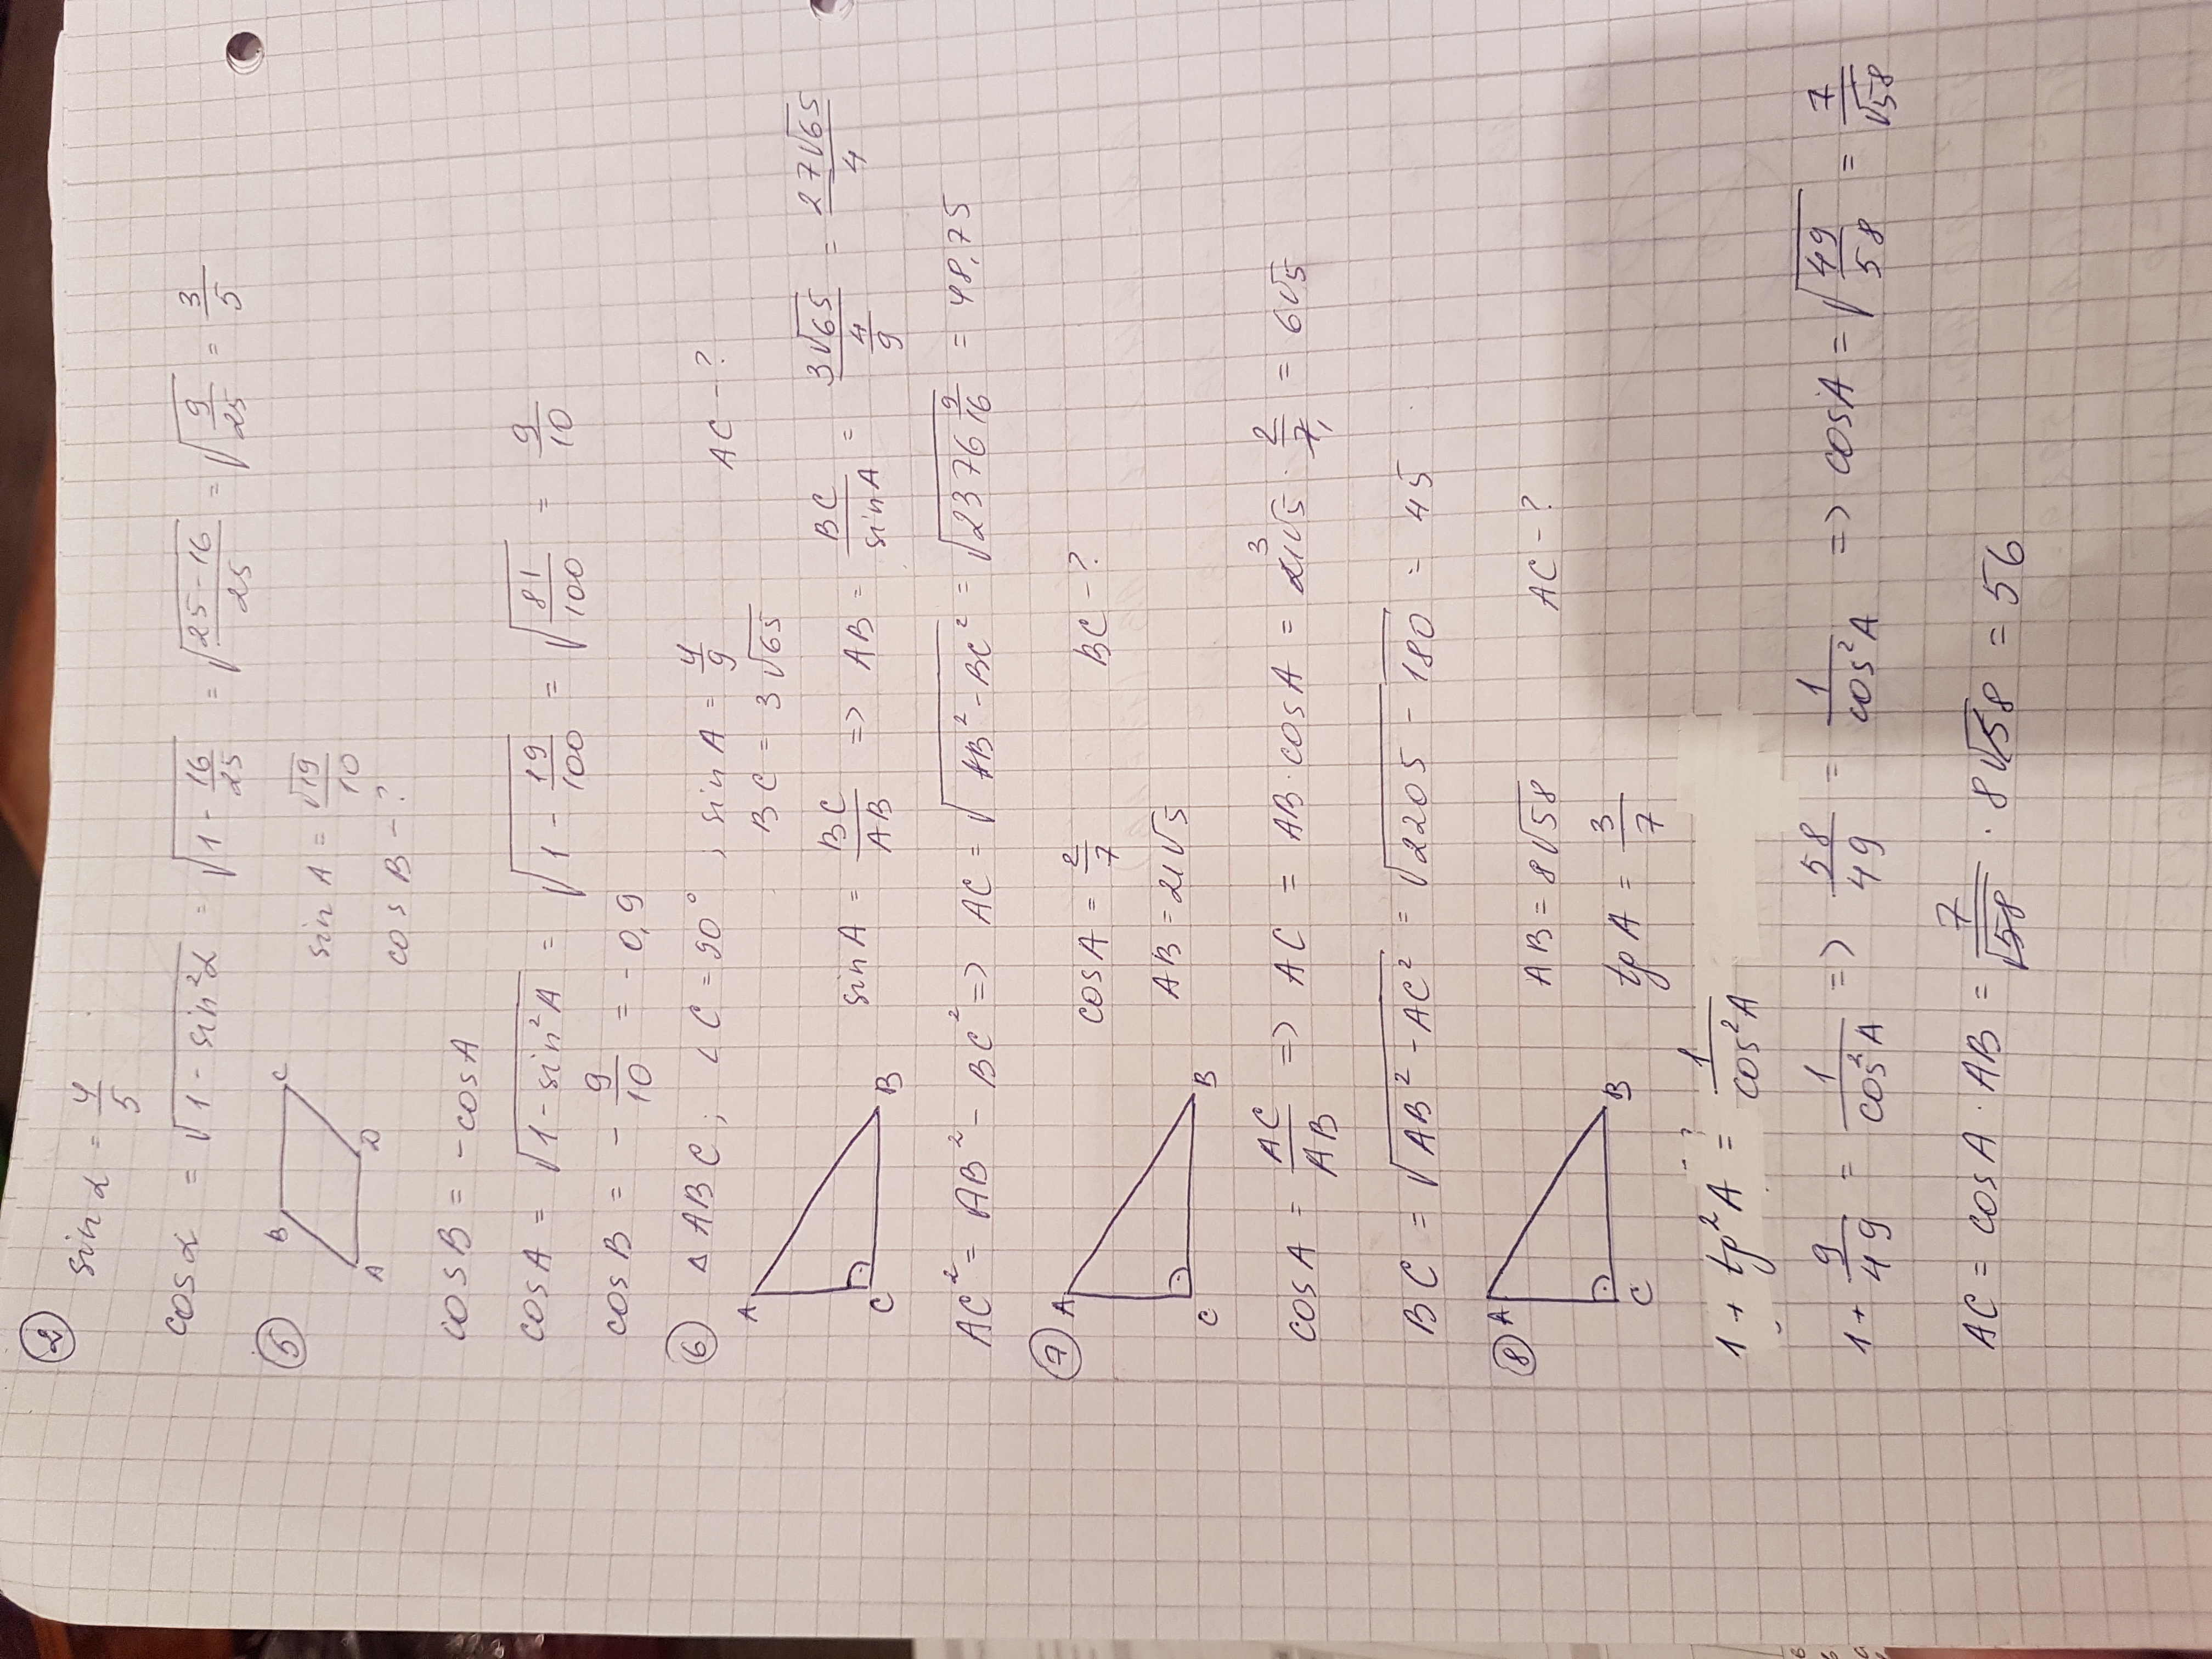 ② sin α = 4/5
cos α = √(1 - sin²α) = √(1 - 16/25) = √((25-16)/25) = √(9/25) = 3/5
⑤ B C A D sin A = √19/10
cos B - ?
cos B = - cos A
cos A = √(1 - sin²A) = √(1 - 19/100) = √(81/100) = 9/10
cos B = - 9/10 = - 0,9
⑥ Δ ABC ; ∠C = 90° ; sin A = 4/9 AC - ?
BC = 3√65
A C B sin A = BC/AB => AB = BC/sin A = 3√65/(4/9) = 27√65/4
AC² = AB² - BC² => AC = √(AB² - BC²) = √(2376 9/16) = 48,75
⑦ A C B cos A = 2/7 BC - ?
AB = 21√5
cos A = AC/AB => AC = AB · cos A = 21√5 3 · 2/7 1 = 6√5
BC = √(AB² - AC²) = √(2205 - 180) = 45
⑧ A C B AB = 8√58 AC - ?
tg A = 3/7
1 + tg²A = 1/cos²A
1 + 9/49 = 1/cos²A => 58/49 = 1/cos²A => cos A = √(49/58) = 7/√58
AC = cos A · AB = 7/√58 · 8√58 = 56